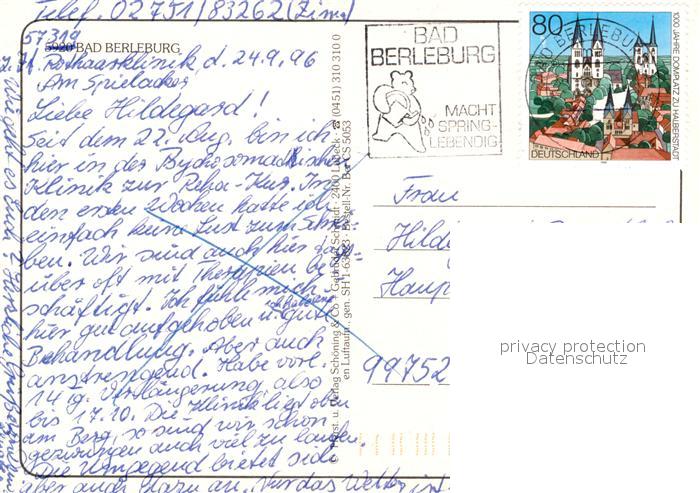 Telef. 02751/83262 (Zimm.)
57319
5920 BAD BERLEBURG
z. Zt. Rothaarklinik, d. 24.9.96
Am Spielacker
Liebe Hildegard!
Seit dem 22. Aug. bin ich
hier in der Psychosomatischen
Klinik zur Reha-Kur. In
den ersten Wochen hatte ich
einfach keine Lust zum Schrei-
ben. Wir sind auch hier tags-
über oft mit Therapien be-
schäftigt. Ich fühle mich
hier gut aufgehoben u. gute
Behandlung. Aber auch
anstrengend. Habe vorl.
14 tg. Verlängerung, also
bis 17.10. Die Klinik liegt oben
am Berg, so sind wir schon
gezwungen auch viel zu laufen.
Die Umgegend bietet sich
aber auch dazu an. Nur das Wetter ist
Wie geht es Euch? Herzliche Grüße
© Foto, Kunst. u. Verlag Schöning & Co · Gebrüder Schmidt · 2400 Lübeck · ☎ (0451) 310 310 0
en Luftaufn. gen. SH 1-63 · Bestell-Nr. Ber CS 5053
BAD
BERLEBURG
MACHT
SPRING-
LEBENDIG
BAD BERLEBURG
80
1000 JAHRE DOMPLATZ ZU HALBERSTADT
DEUTSCHLAND
Frau
Hild
Haup
99752
privacy protection
Datenschutz